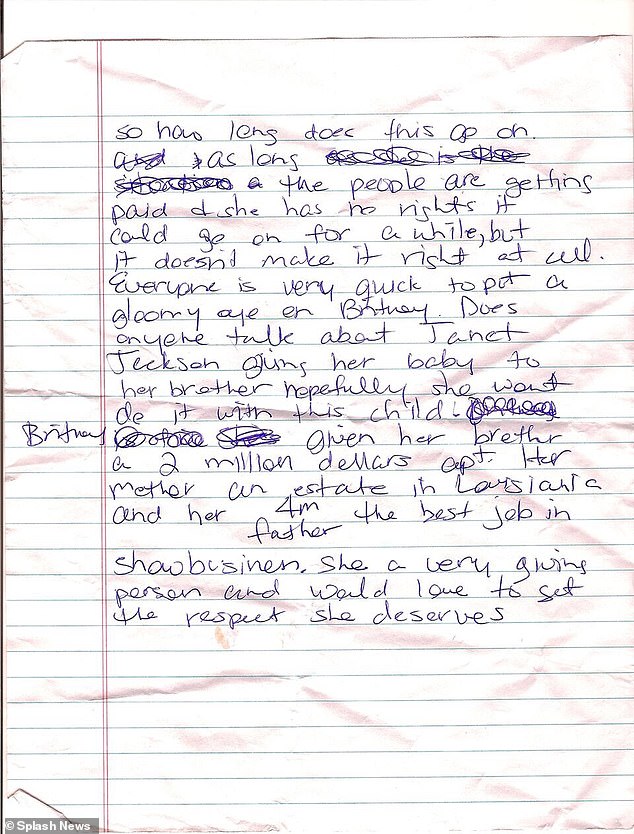 so how long does this go on.
and as long
the people are getting
paid & she has no rights it
could go on for a while, but
it doesn't make it right at all.
Everyone is very quick to put a
gloomy eye on Britney. Does
anyone talk about Janet
Jeckson giving her baby to
her brother hopefully she wont
do it with this child.
Britney given her brother
a 2 million dollars apt. Her
mother an estate in Louisiania
and her 4m the best job in
father
showbusiness. She a very giving
person and would love to get
the respect she deserves
© Splash News